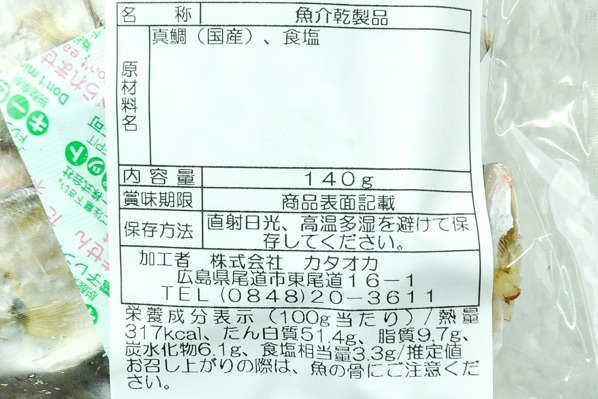 名　称　魚介乾製品
原材料名　真鯛（国産）、食塩
内容量　140g
賞味期限　商品表面記載
保存方法　直射日光、高温多湿を避けて保
存してください。
加工者　株式会社　カタオカ
広島県尾道市東尾道16-1
TEL(0848)20-3611
栄養成分表示(100g当たり)/熱量
317kcal、たん白質51.4g、脂質9.7g、
炭水化物6.1g、食塩相当量3.3g/推定値
お召し上がりの際は、魚の骨にご注意くだ
さい。